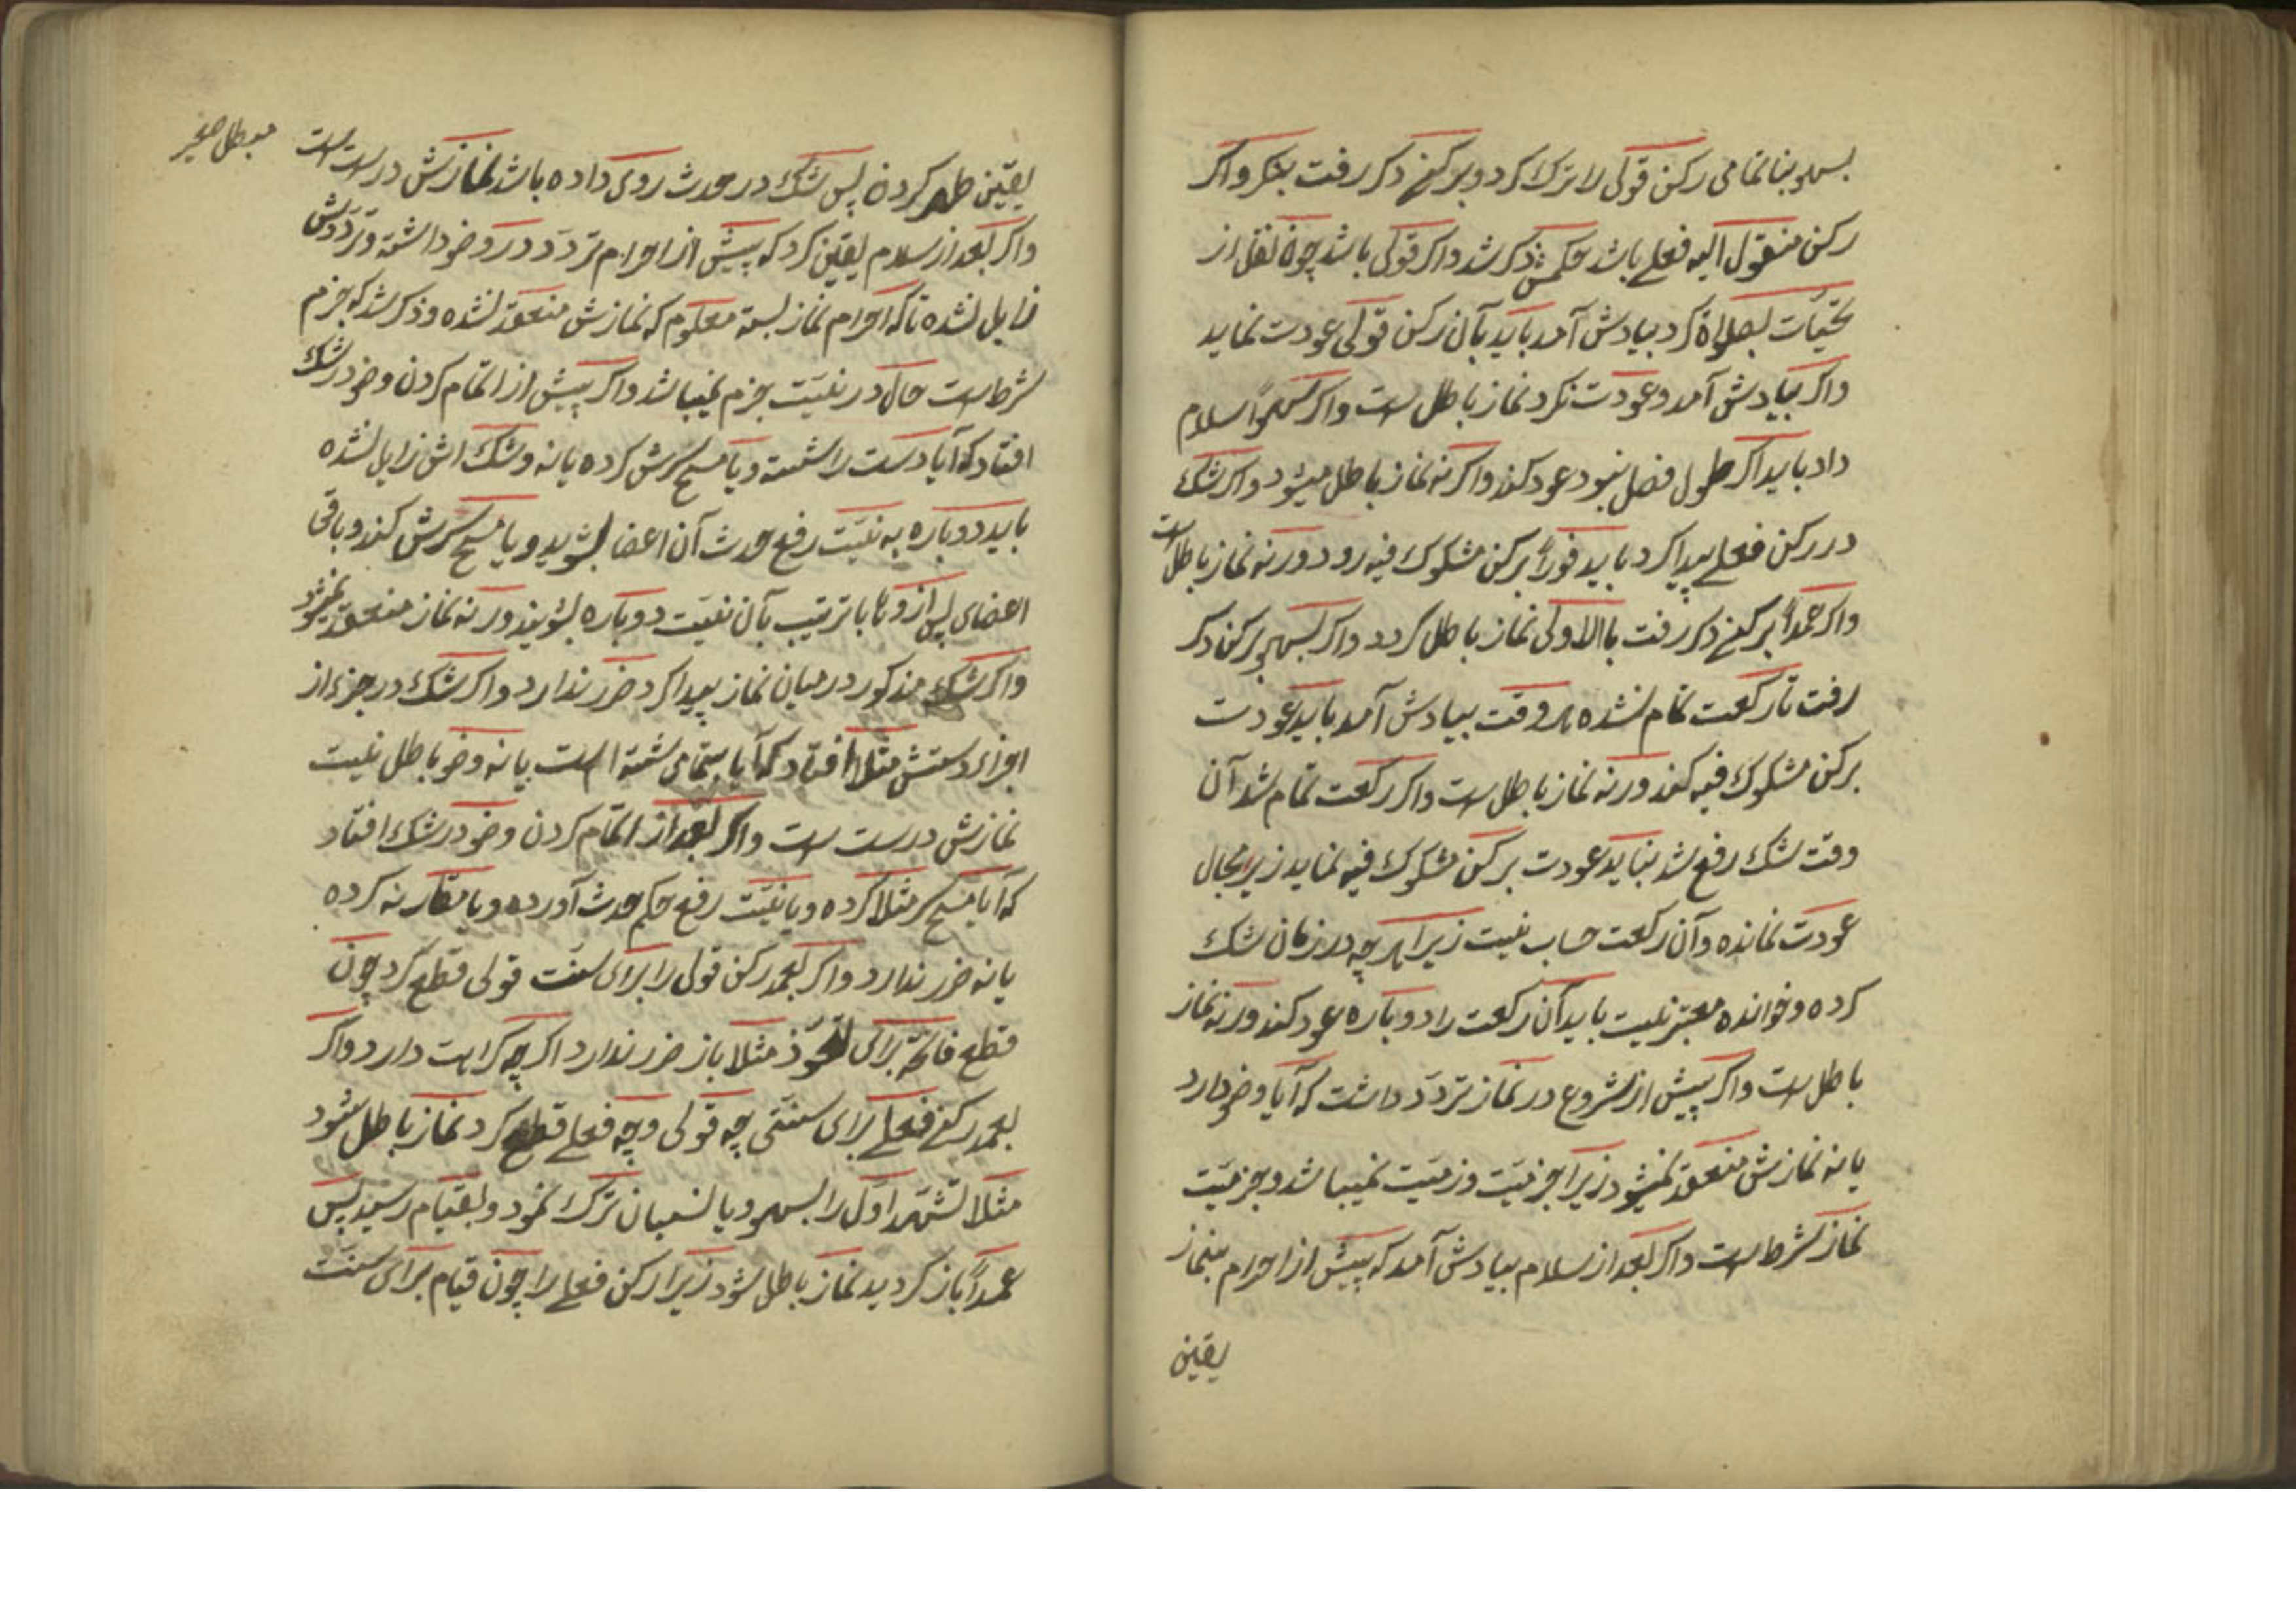 بسهو بناتمامی رکن قولی را ترک کرد و برکنے دکر رفت بنکر واکر
رکن منقول الیه فعلے باشد حکمش ذکر شد واکر قولی باشد چون نقل از
تحیّات بصلاة کرد بیادش آمد باید بآن رکن قولی عودت نماید
واکر بیادش آمد وعودت نکرد نماز باطل است واکر سهواً سلام
داد باید اکر طول فصل نبود عود کند واکر نه نماز باطل میشود واکر شک
در رکن فعلے پیدا کرد باید فوراً برکن مشکوک فیه رود ورنه نماز باطل است
واکر عمداً برکنے دکر رفت باالاولی نماز باطل کردد واکر بسهو برکن دکر
رفت تا رکعت تمام نشده هر وقت بیادش آمد باید عودت
برکن مشکوک فیه کند ورنه نماز باطل است واکر رکعت تمام شد آن
وقت شک رفع شد نباید عودت برکن مشکوک فیه نماید زیرا مجال
عودت نمانده وآن رکعت حساب نیست زیرا هر چه در زمان شک
کرده وخوانده معتبر نیست باید آن رکعت را دوباره عود کند ورنه نماز
باطل است واکر پیش از شروع در نماز تردّد داشت که آیا وضو دارد
یا نه نمازش منعقد نمیشود زیرا جزمیّت وزمیّت نمیباشد وجزمیّت
نماز شرط است واکر بعد از سلام بیادش آمد که پیش از احرام بنماز
یقین
یقین طهر کرده پس شک در حدث روی داده باشد نمازش درست است
مبطل صغیر
واکر بعد از سلام یقین کرد که پیش از احرام تردّد در وضو داشته وتردّدش
زایل نشده تا که احرام نماز بسته معلوم که نمازش منعقد نشده وذکر شد که جزم
شرط است حال در نیّت جزم نمیباشد واکر پیش از اتمام کردن وضو در شک
افتاد که آیا دست را شسته ویا مسح سرش کرده یا نه وشک اش زایل نشده
باید دوباره به نیّت رفع حدث آن اعضا بشوید ویا مسح سرش کند وباقی
اعضای پس از وی با ترتیب بآن نیّت دوباره بشویند ورنه نماز منعقد نمیشود
واکر شک مذکور در میان نماز پیدا کرد ضرر ندارد واکر شک در جزء از
اجزاء دستش مثلا افتاد که آیا بتمامی شسته است یا نه وضو باطل نیست
نمازش درست است واکر بعد از اتمام کردن وضو در شک افتاد
که آیا مسح سر مثلا کرده ویا نیّت رفع حکم حدث آورده ویا مقارنه کرده
یا نه ضرر ندارد واکر بعمد رکن قولی را برای سنّت قولی قطع کرد چون
قطع فاتحه برای تعوّذ مثلا باز ضرر ندارد اکر چه کراهت دارد واکر
بعمد رکنے فعلے برای سنتی چه قولی وچه فعلے قطع کرد نماز باطل شود
مثلا تشهّد اوّل را بسهو ویا نسیان ترک نمود وبقیام رسید پس
عمداً باز کردید نماز باطل شود زیرا رکن فعلے را چون قیام برای سنّت